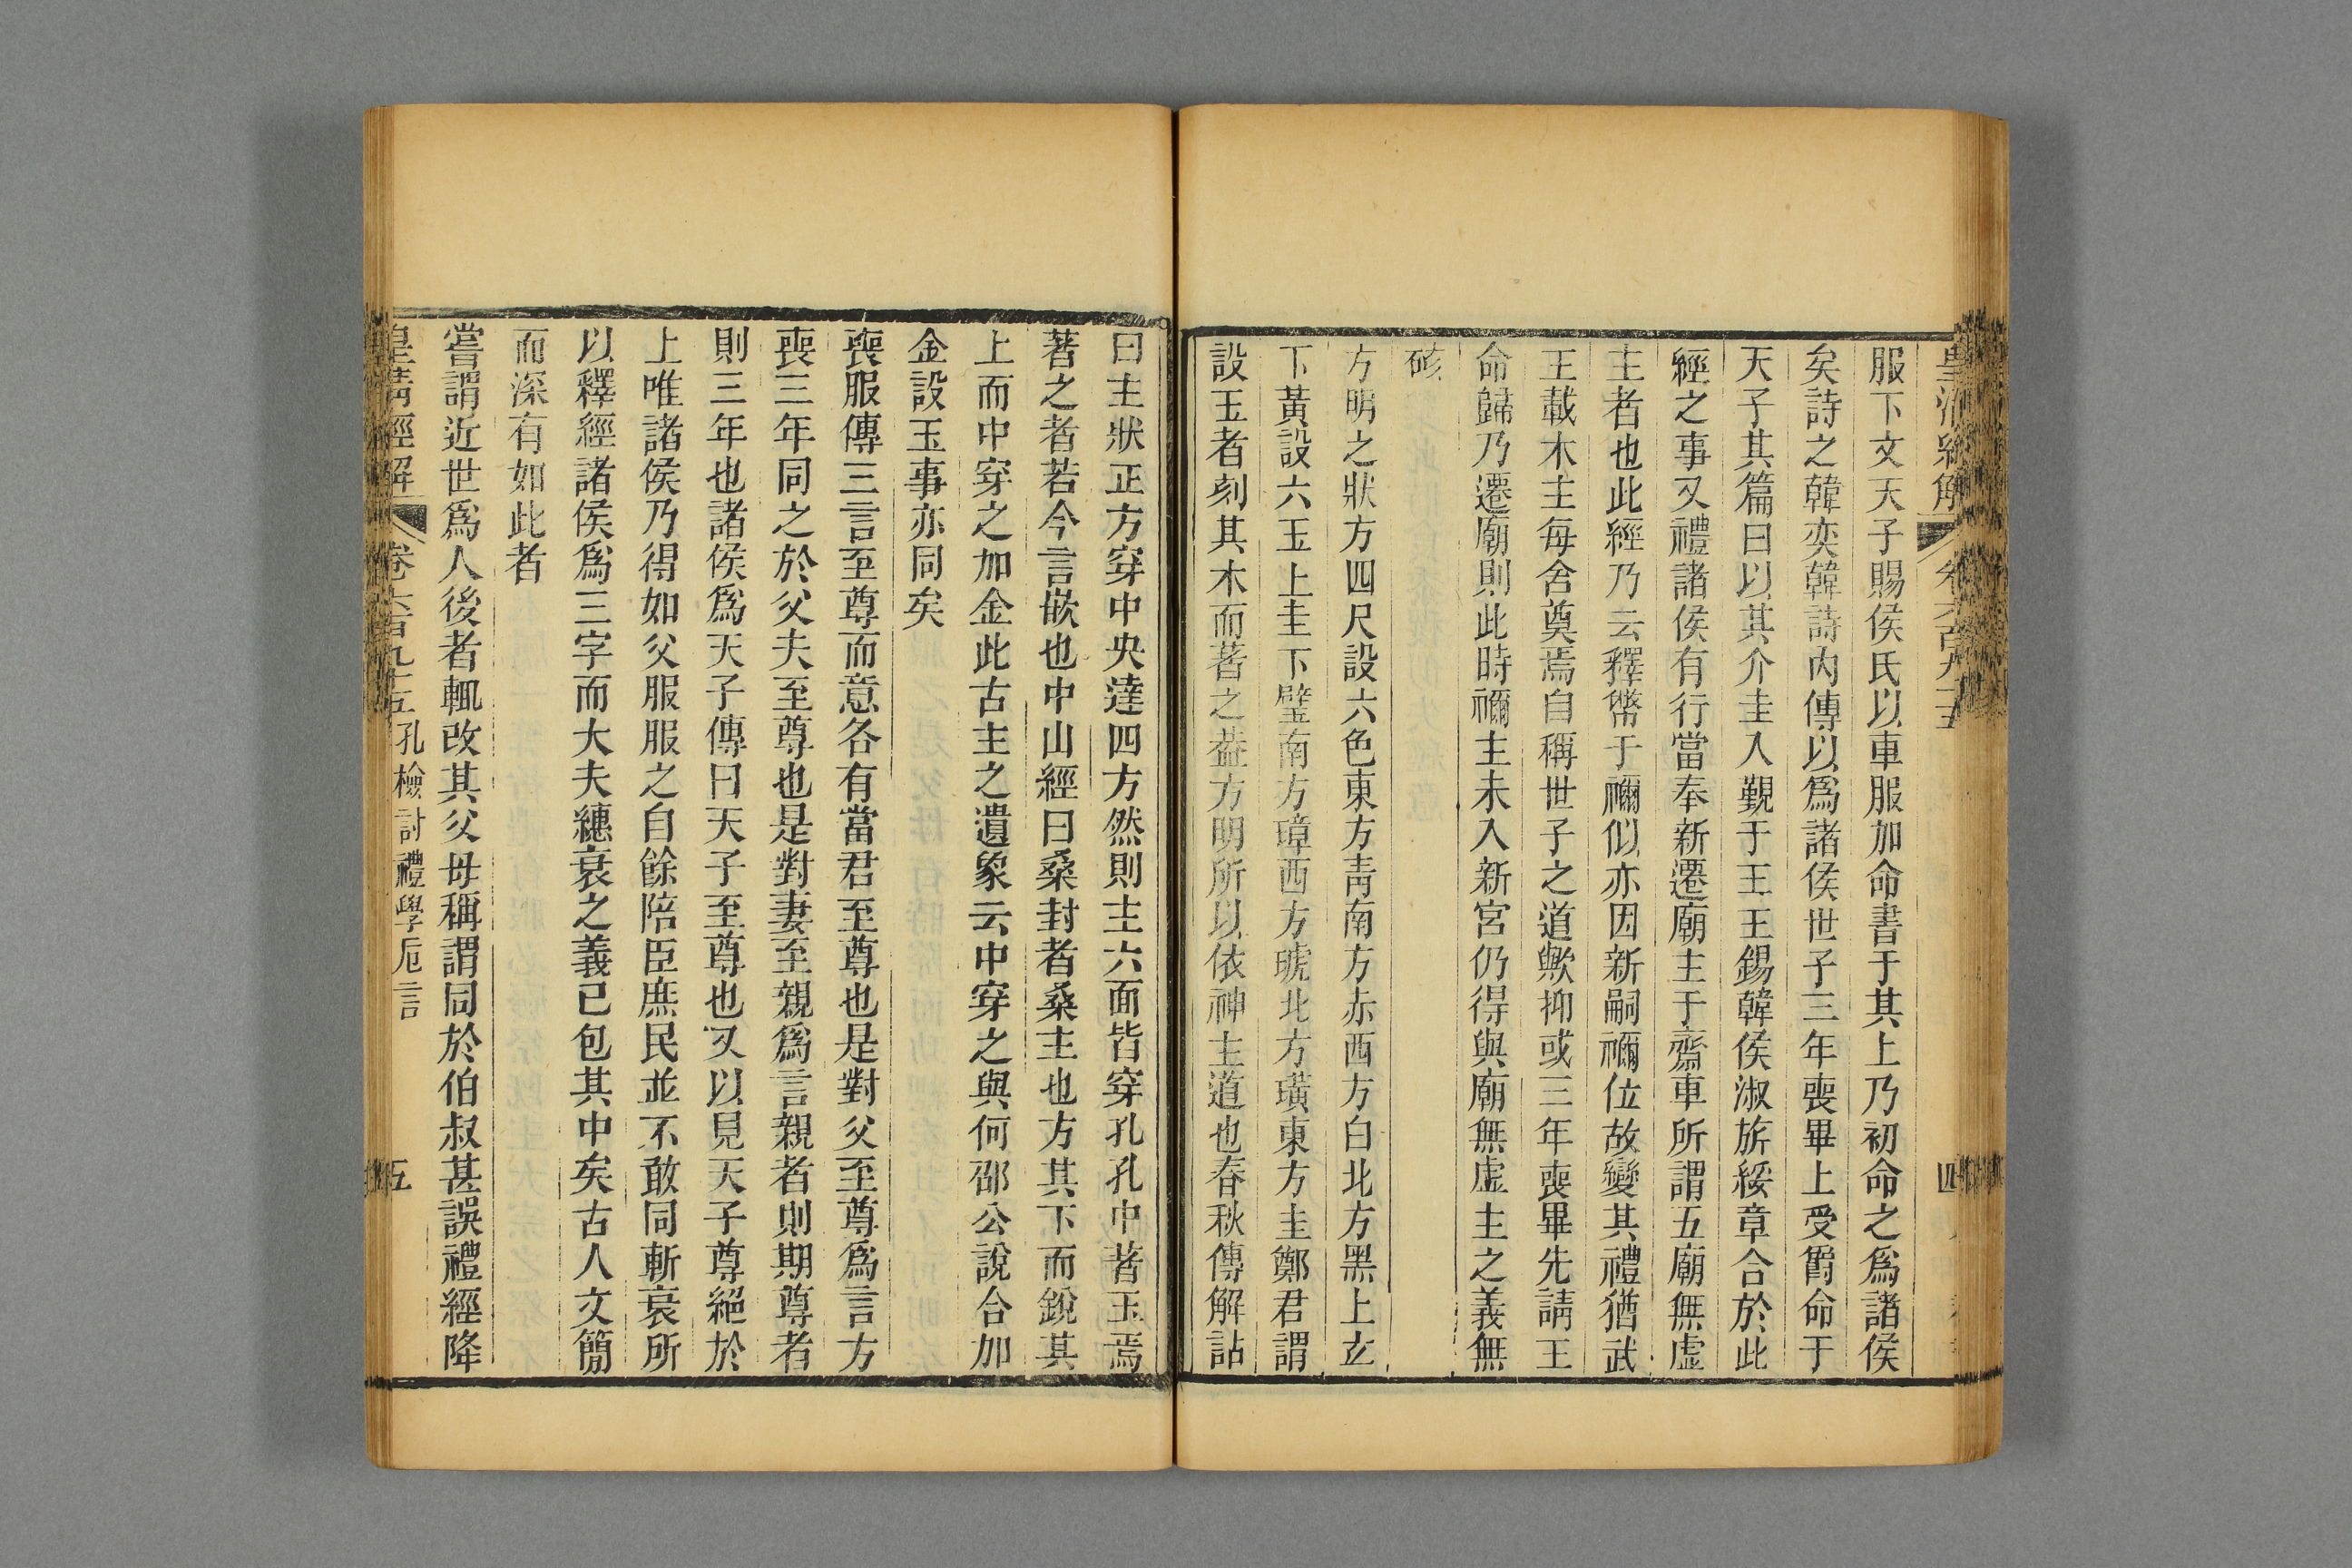 皇清經解 卷六百九十五 四
服下文天子賜侯氏以車服加命書于其上乃初命之爲諸侯
矣詩之韓奕韓詩內傳以爲諸侯世子三年喪畢上受爵命于
天子其篇曰以其介圭入覲于王王錫韓侯淑旂綏章合於此
經之事又禮諸侯有行當奉新遷廟主于齋車所謂五廟無虛
主者也此經乃云釋幣于禰似亦因新嗣禰位故變其禮猶武
王載木主每舍奠焉自稱世子之道歟抑或三年喪畢先請王
命歸乃遷廟則此時禰主未入新宮仍得與廟無虛主之義無
硋
方明之狀方四尺設六色東方青南方赤西方白北方黑上玄
下黃設六玉上圭下璧南方璋西方琥北方璜東方圭鄭君謂
設玉者刻其木而著之葢方明所以依神主道也春秋傳解詁
曰主狀正方穿中央達四方然則主六面皆穿孔孔中著玉焉
著之者若今言嵌也中山經曰桑封者桑主也方其下而銳其
上而中穿之加金此古主之遺象云中穿之與何邵公說合加
金設玉事亦同矣
喪服傳三言至尊而意各有當君至尊也是對父至尊爲言方
喪三年同之於父夫至尊也是對妻至親爲言親者則期尊者
則三年也諸侯爲天子傳曰天子至尊也又以見天子尊絕於
上唯諸侯乃得如父服服之自餘陪臣庶民並不敢同斬衰所
以釋經諸侯爲三字而大夫繐衰之義已包其中矣古人文簡
而深有如此者
嘗謂近世爲人後者輒改其父母稱謂同於伯叔甚誤禮經降
皇清經解 卷六百九十五 孔檢討禮學卮言 五